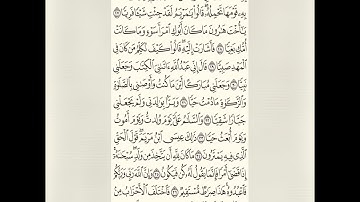 بِهِۦ قَوْمَهَا تَحْمِلُهُۥ ۖ قَالُوا۟ يَٰمَرْيَمُ لَقَدْ جِئْتِ شَيْـًٔا فَرِيًّا ٢٧
يَٰٓأُخْتَ هَٰرُونَ مَا كَانَ أَبُوكِ ٱمْرَأَ سَوْءٍ وَمَا كَانَتْ
أُمُّكِ بَغِيًّا ٢٨ فَأَشَارَتْ إِلَيْهِ ۖ قَالُوا۟ كَيْفَ نُكَلِّمُ مَن كَانَ فِى
ٱلْمَهْدِ صَبِيًّا ٢٩ قَالَ إِنِّى عَبْدُ ٱللَّهِ ءَاتَىٰنِىَ ٱلْكِتَٰبَ وَجَعَلَنِى
نَبِيًّا ٣٠ وَجَعَلَنِى مُبَارَكًا أَيْنَ مَا كُنتُ وَأَوْصَٰنِى بِٱلصَّلَوٰةِ
وَٱلزَّكَوٰةِ مَا دُمْتُ حَيًّا ٣١ وَبَرًّۢا بِوَٰلِدَتِى وَلَمْ يَجْعَلْنِى
جَبَّارًا شَقِيًّا ٣٢ وَٱلسَّلَٰمُ عَلَىَّ يَوْمَ وُلِدتُّ وَيَوْمَ أَمُوتُ
وَيَوْمَ أُبْعَثُ حَيًّا ٣٣ ذَٰلِكَ عِيسَى ٱبْنُ مَرْيَمَ ۚ قَوْلَ ٱلْحَقِّ
ٱلَّذِى فِيهِ يَمْتَرُونَ ٣٤ مَا كَانَ لِلَّهِ أَن يَتَّخِذَ مِن وَلَدٍ ۖ سُبْحَٰنَهُۥٓ ۚ
إِذَا قَضَىٰٓ أَمْرًا فَإِنَّمَا يَقُولُ لَهُۥ كُن فَيَكُونُ ٣٥ وَإِنَّ ٱللَّهَ رَبِّى وَرَبُّكُمْ
فَٱعْبُدُوهُ ۚ هَٰذَا صِرَٰطٌ مُّسْتَقِيمٌ ٣٦ فَٱخْتَلَفَ ٱلْأَحْزَابُ مِنۢ